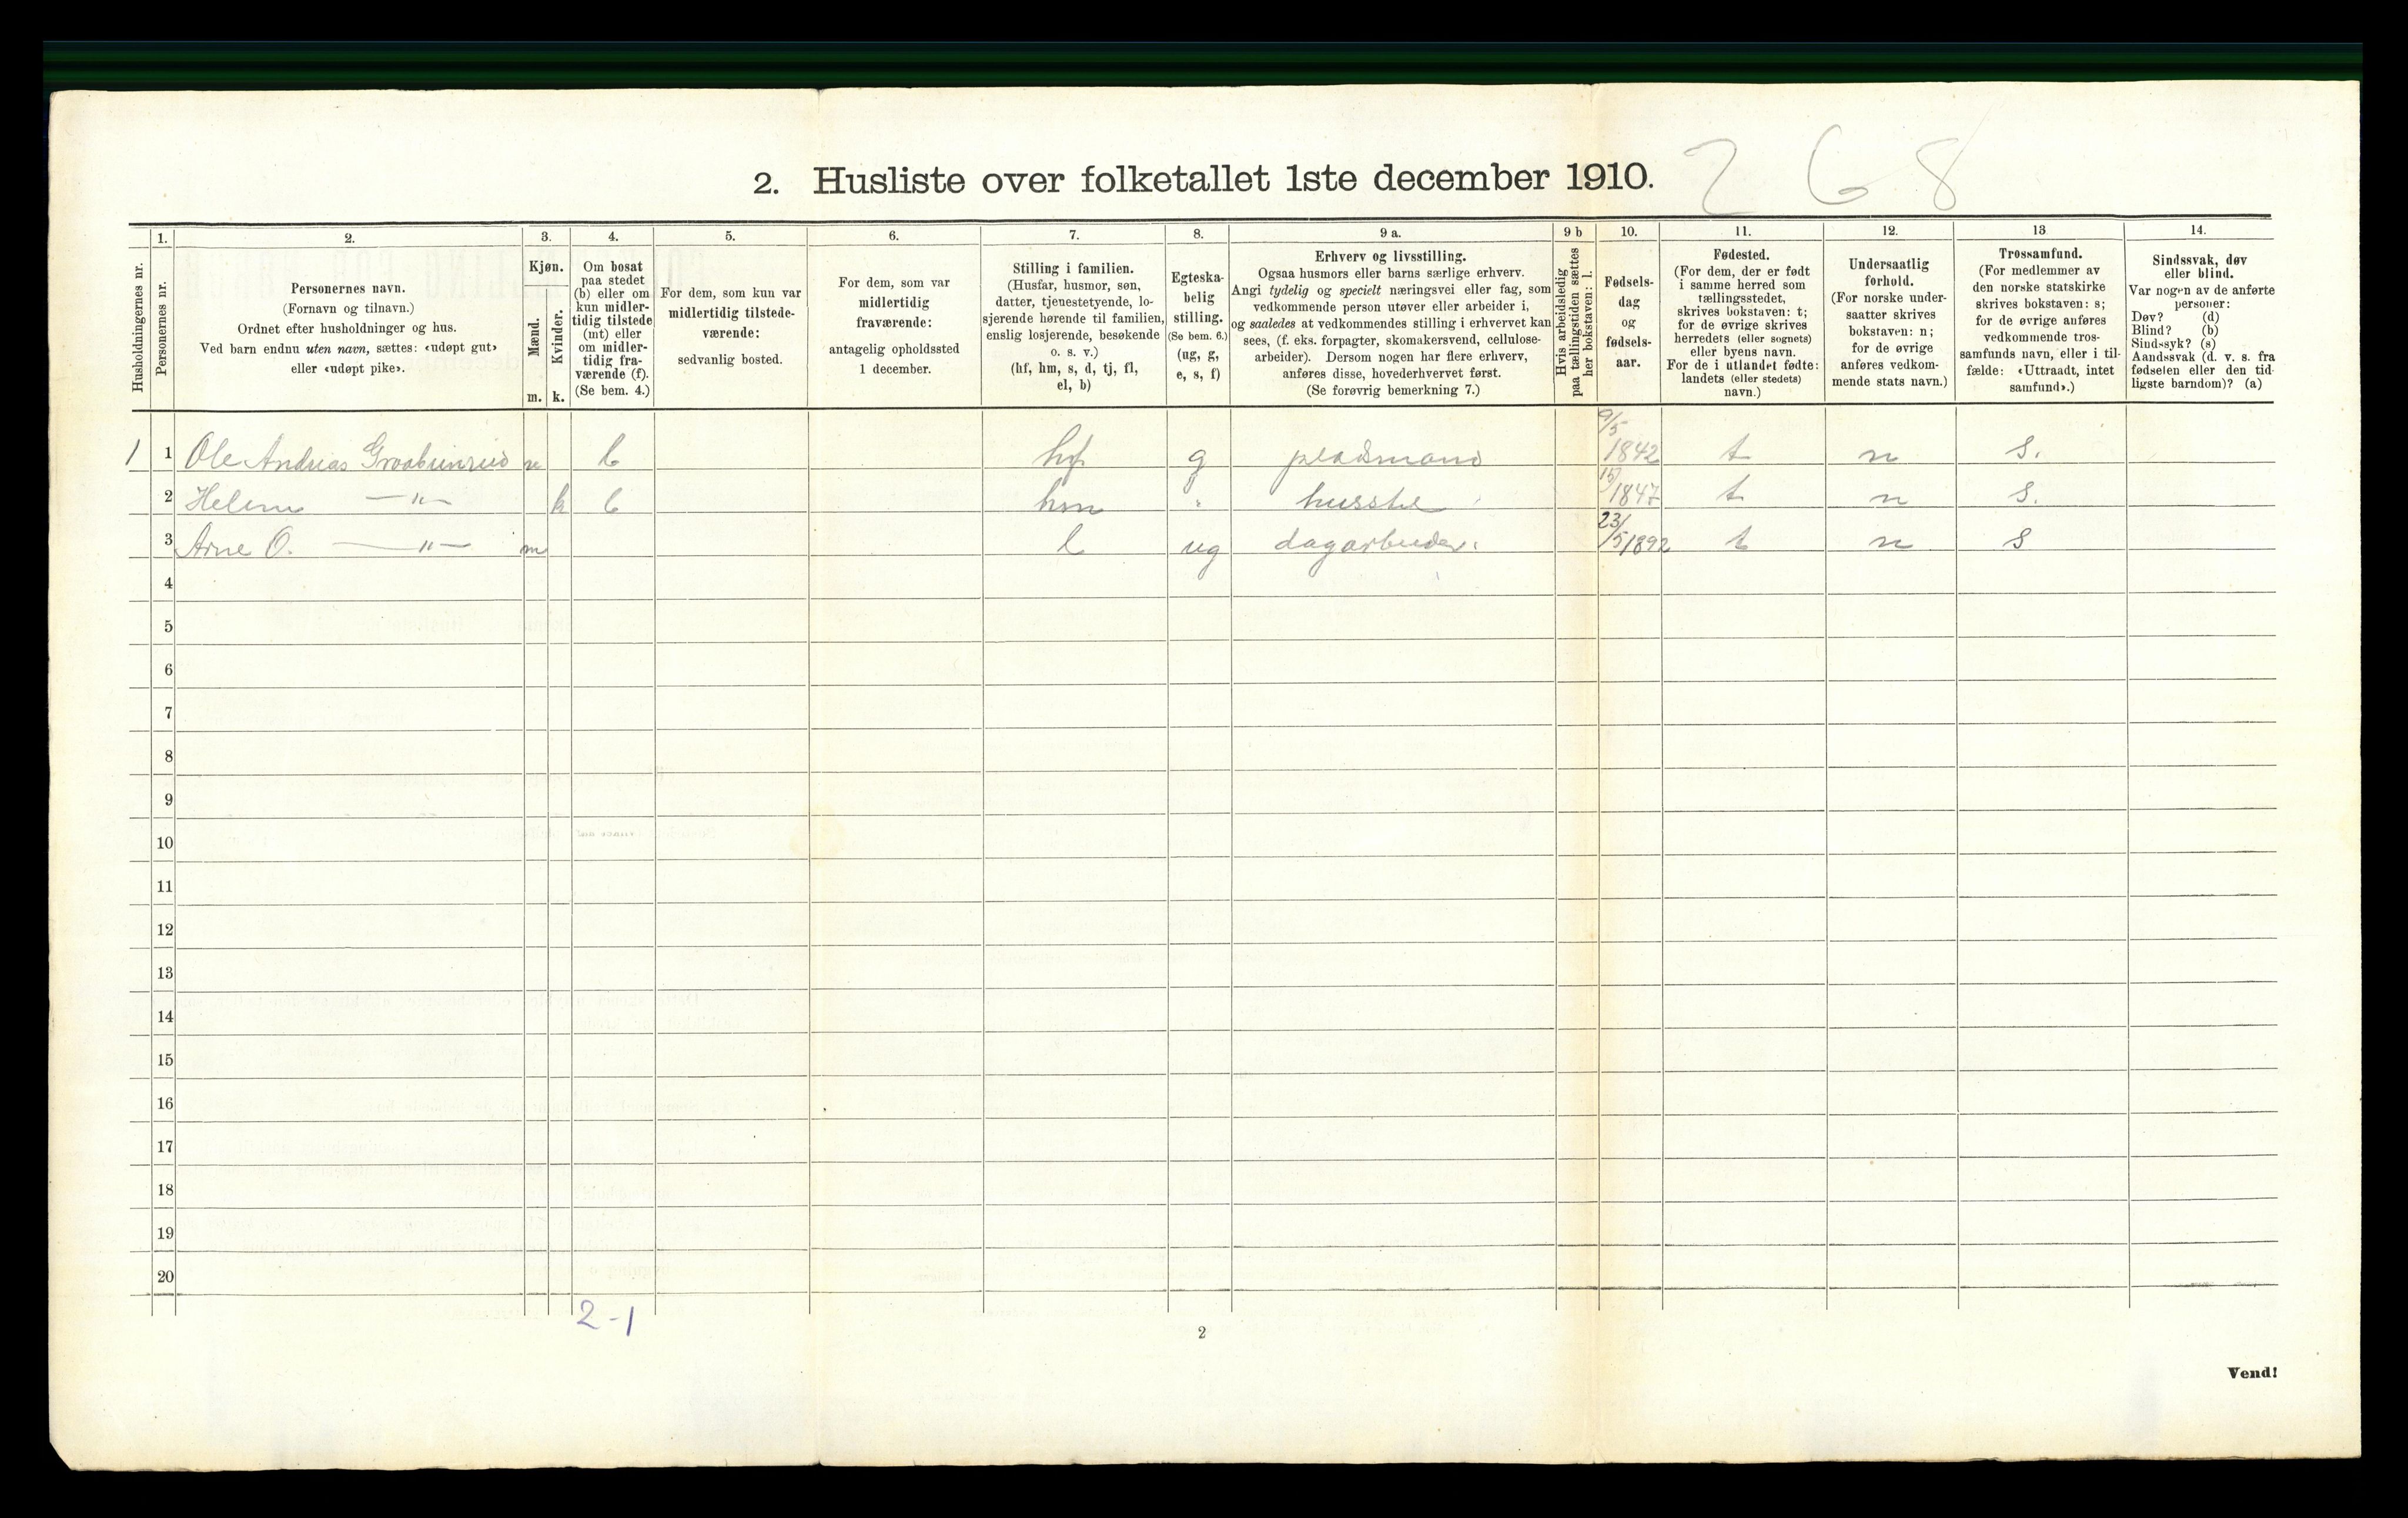 2. Husliste over folketallet 1ste december 1910. 268
1. 2. 3. 4. 5. 6. 7. 8. 9 a. 9 b 10. 11. 12. 13 14.
Husholdningernes nr.
Personernes nr.
Personernes navn.
(Fornavn og tilnavn.)
Ordnet efter husholdninger og hus.
Ved barn endnu uten navn, sættes: «udøpt gut»
eller «udøpt pike».
Kjøn.
Mænd.
Kvinder.
m. k.
Om bosat
paa stedet
(b) eller om
kun midler-
tidig tilstede
(mt) eller
om midler-
tidig fra-
værende (f).
(Se bem. 4.)
For dem, som kun var
midlertidig tilstede-
værende:
sedvanlig bosted.
For dem, som var
midlertidig
fraværende:
antagelig opholdssted
1 december.
Stilling i familien.
(Husfar, husmor, søn,
datter, tjenestetyende, lo-
sjerende hørende til familien,
enslig losjerende, besøkende
o. s. v.)
(hf, hm, s, d, tj, fl,
el, b)
Egteska-
belig
stilling.
(Se bem. 6.)
(ug, g,
e, s, f)
Erhverv og livsstilling.
Ogsaa husmors eller barns særlige erhverv.
Angi tydelig og specielt næringsvei eller fag, som
vedkommende person utøver eller arbeider i,
og saaledes at vedkommendes stilling i erhvervet kan
sees, (f. eks. forpagter, skomakersvend, cellulose-
arbeider). Dersom nogen har flere erhverv,
anføres disse, hovederhvervet først.
(Se forøvrig bemerkning 7.)
Hvis arbeidsledig
paa tællingstiden sættes
her bokstaven: l.
Fødsels-
dag
og
fødsels-
aar.
Fødested.
(For dem, der er født
i samme herred som
tællingsstedet,
skrives bokstaven: t;
for de øvrige skrives
herredets (eller sognets)
eller byens navn.
For de i utlandet fødte:
landets (eller stedets)
navn.)
Undersaatlig
forhold.
(For norske under-
saatter skrives
bokstaven: n;
for de øvrige
anføres vedkom-
mende stats navn.)
Trossamfund.
(For medlemmer av
den norske statskirke
skrives bokstaven: s;
for de øvrige anføres
vedkommende tros-
samfunds navn, eller i til-
fælde: «Uttraadt, intet
samfund».)
Sindssvak, døv
eller blind.
Var nogen av de anførte
personer:
Døv? (d)
Blind? (b)
Sindssyk? (s)
Aandssvak (d. v. s. fra
fødselen eller den tid-
ligste barndom)? (a)
1 1 Ole Andreas m b hf g pladsmand 9/5 1842 t n s.
2 Helene —"— k b hm " husstel 1847 t n s.
3 Arne O. —"— m l ug dagarbeider. 23/5 1892 t n s
4
5
6
7
8
9
10
11
12
13
14
15
16
17
18
19
20
2-1
2
Vend!